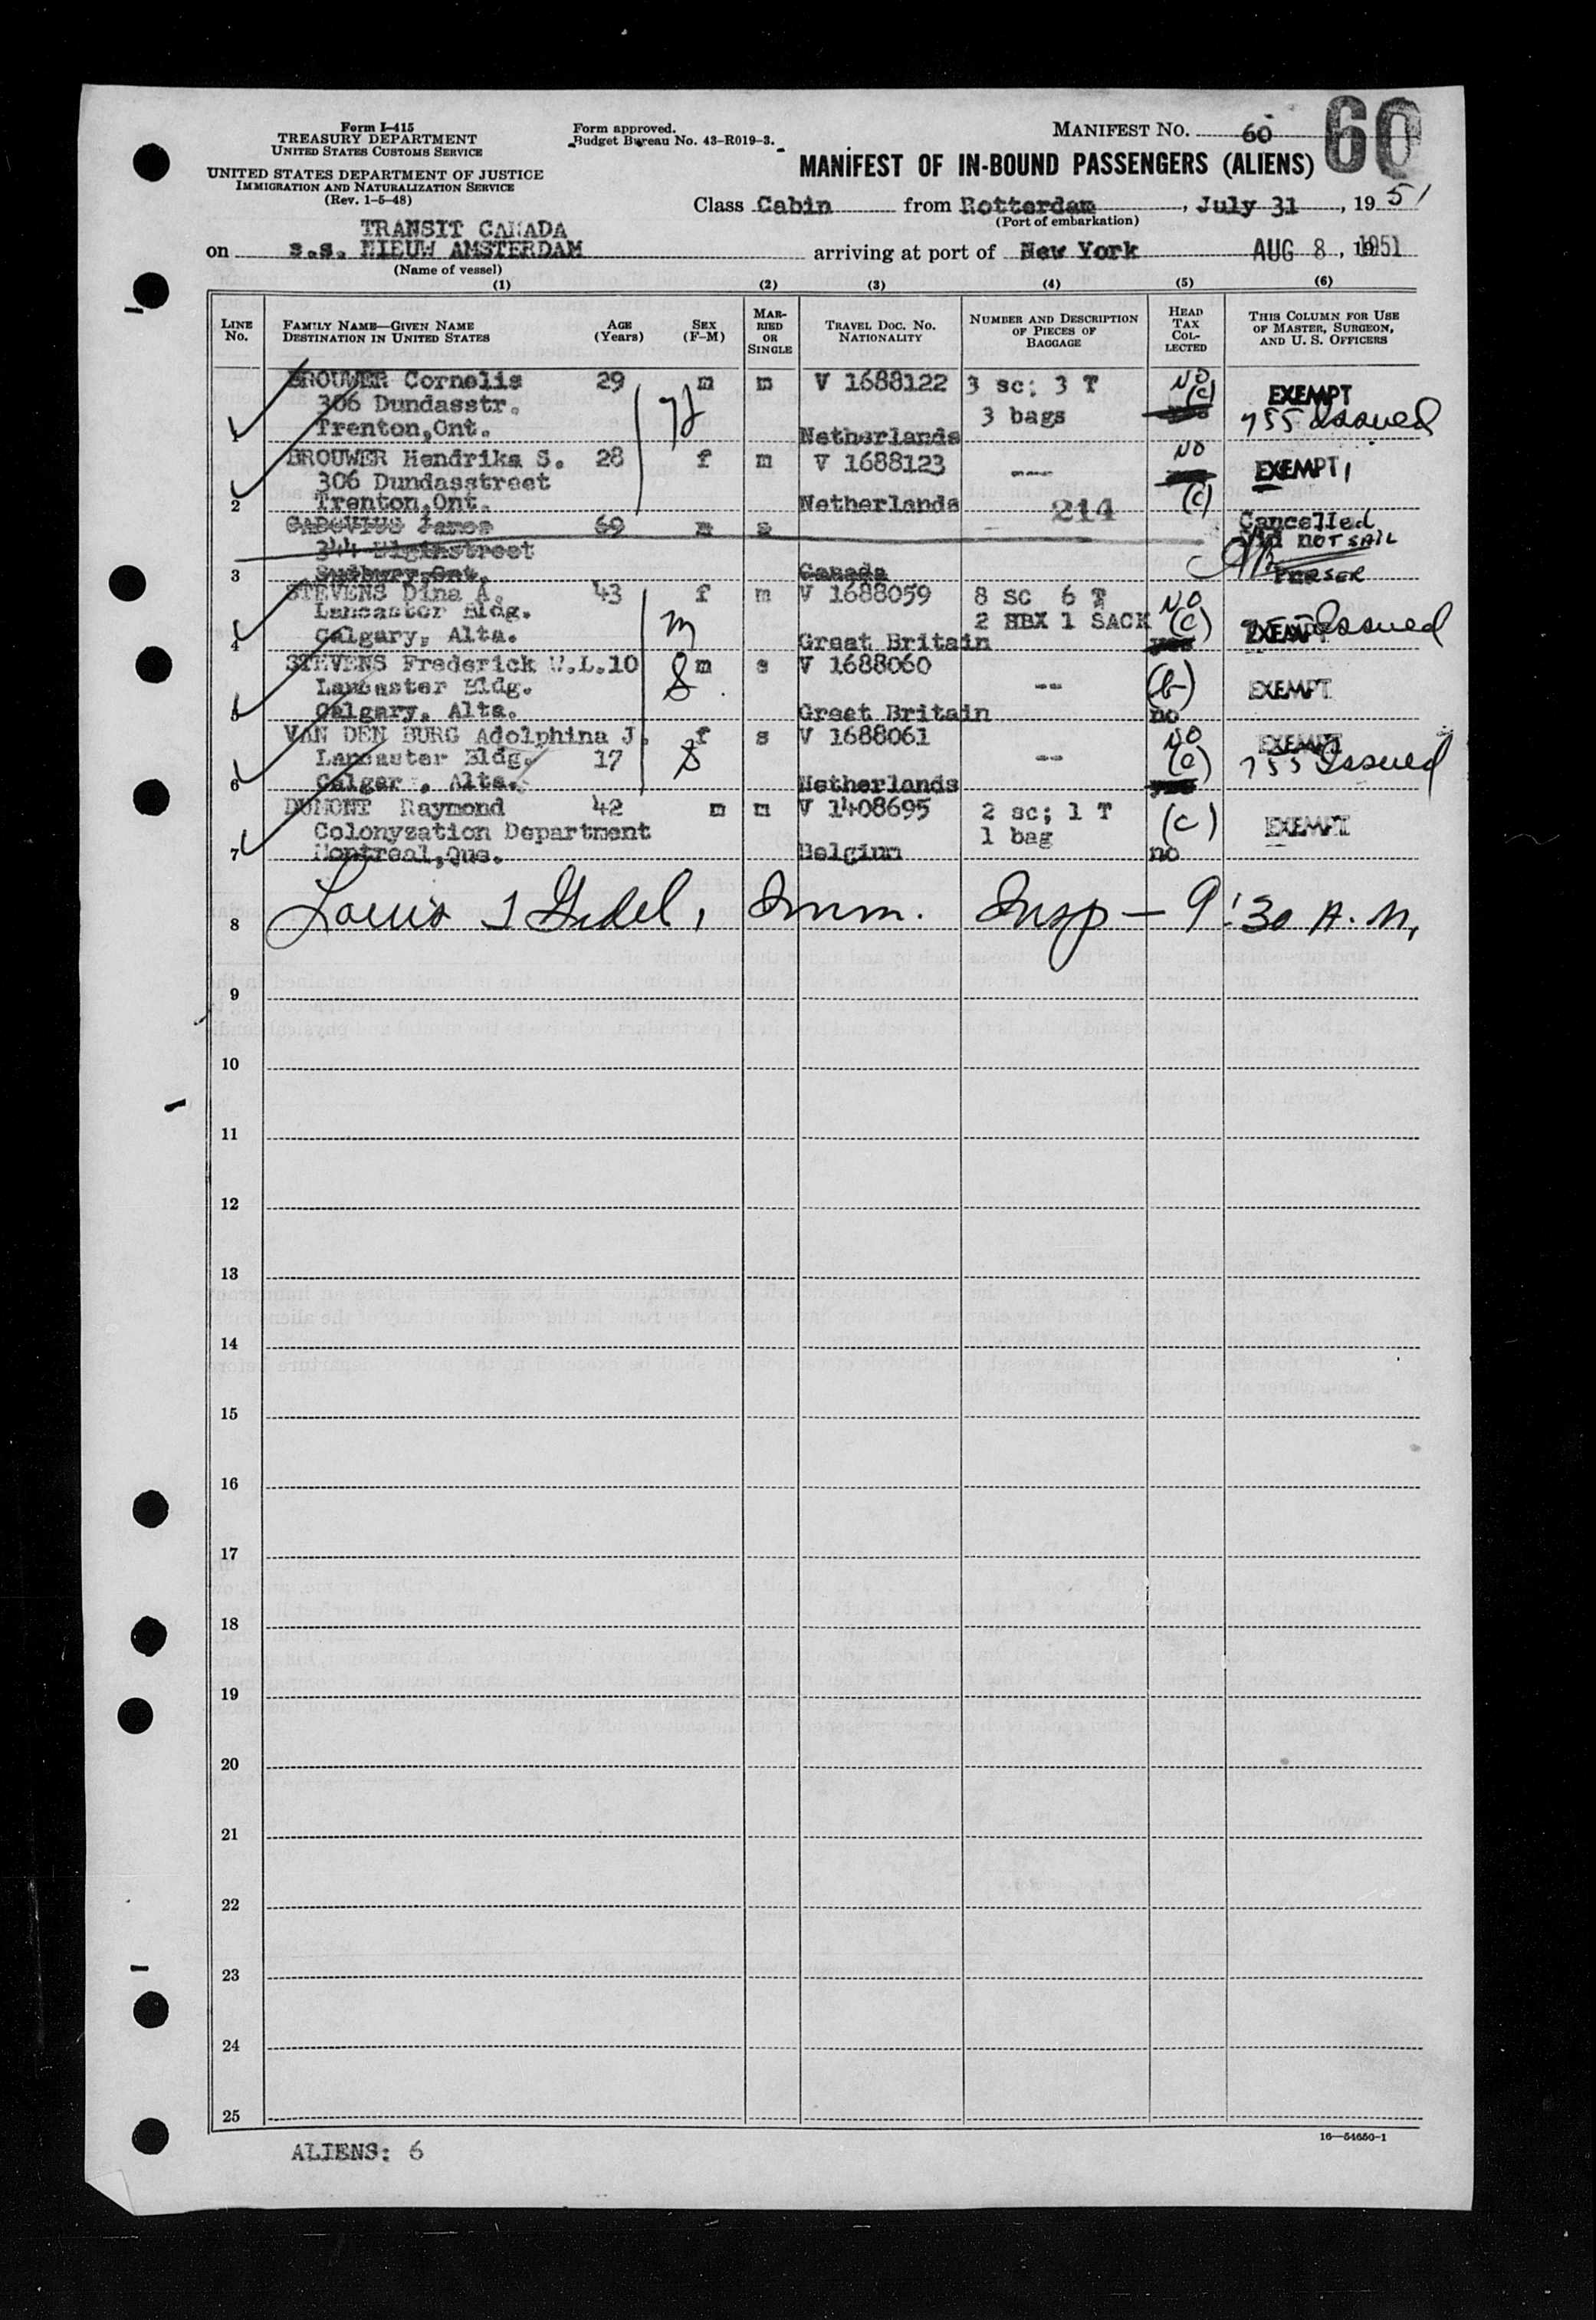 Form I-415
TREASURY DEPARTMENT
UNITED STATES CUSTOMS SERVICE
UNITED STATES DEPARTMENT OF JUSTICE
IMMIGRATION AND NATURALIZATION SERVICE
(Rev. 1-5-48)
Form approved.
Budget Bureau No. 43-R019-3.
MANIFEST No. 60
60
MANIFEST OF IN-BOUND PASSENGERS (ALIENS)
Class Cabin from Rotterdam, July 31, 1951
(Port of embarkation)
TRANSIT CANADA
on s.s. NIEUW AMSTERDAM arriving at port of New York AUG 8, 1951
(Name of vessel)
(1) (2) (3) (4) (5) (6)
LINE No. FAMILY NAME—GIVEN NAME DESTINATION IN UNITED STATES AGE (Years) SEX (F-M) MARRIED OR SINGLE TRAVEL DOC. No. NATIONALITY NUMBER AND DESCRIPTION OF PIECES OF BAGGAGE HEAD TAX COLLECTED THIS COLUMN FOR USE OF MASTER, SURGEON, AND U. S. OFFICERS
BROUWER Cornelis 29 m m V 1688122 3 sc; 3 T NO (c) EXEMPT
306 Dundasstr. 3 bags 755 Issued
1 Trenton,Ont. Netherlands
BROUWER Hendrika S. 28 f m V 1688123 --- NO EXEMPT
306 Dundasstreet
2 Trenton,Ont. Netherlands 214 (c)
James 69 m s Cancelled
344 Elginstreet Did NOT SAIL
3 Sudbury,Ont. Canada PERSER
STEVENS Dina A. 43 f m V 1688059 8 sc 6 T NO
Lancaster Bldg. 2 HBX 1 SACK (c) EXEMPT Issued
4 Calgary, Alta. m Great Britain yes
STEVENS Frederick W.L. 10 m s V 1688060
Lancaster Bldg. S -- (b) EXEMPT
5 Calgary, Alta. Great Britain no
VAN DEN BURG Adolphina J. f s V 1688061 NO EXEMPT
Lancaster Bldg. 17 S -- (c) 755 Issued
6 Calgar , Alta. Netherlands yes
DUMONT Raymond 42 m m V 1408695 2 sc; 1 T (c) EXEMPT
Colonyzation Department 1 bag
7 Montreal,Que. Belgium no
8 Louis Imm. Insp — 9:30 A.M.
9
10
11
12
13
14
15
16
17
18
19
20
21
22
23
24
25
ALIENS: 6
16—54650-1